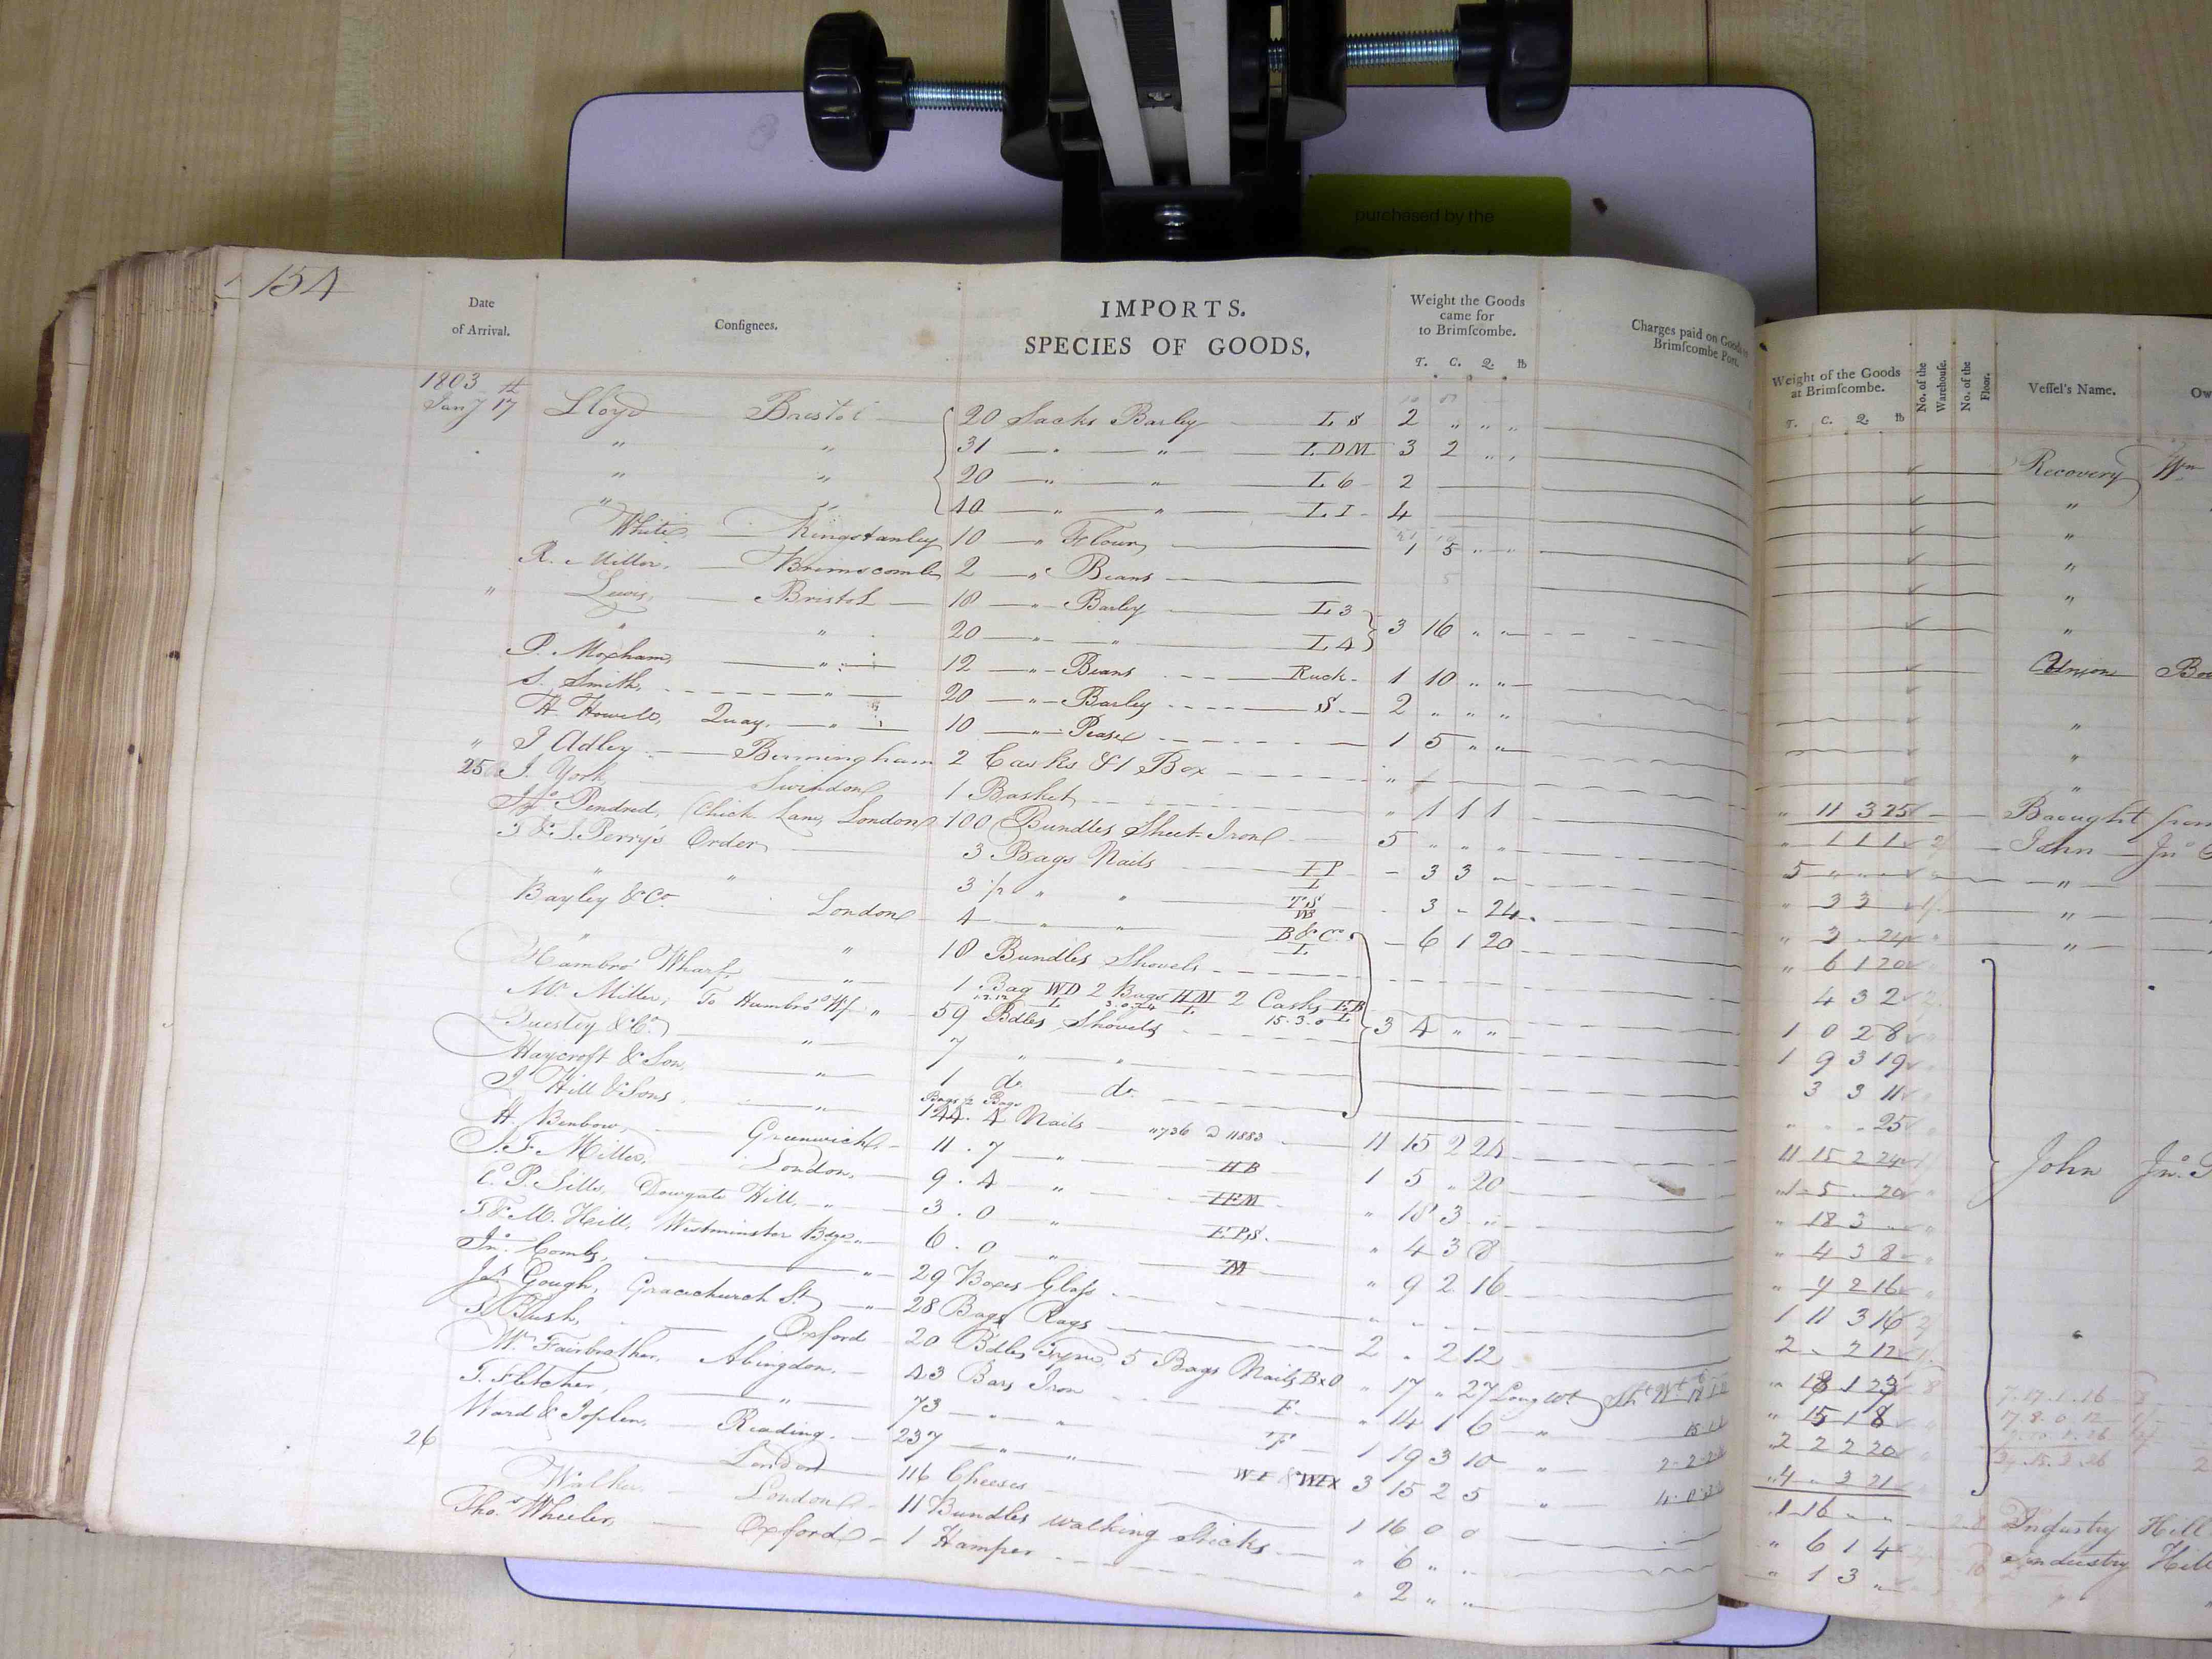 purchased by the
154
Date
of Arrival.
Consignees.
IMPORTS.
SPECIES OF GOODS,
Weight the Goods
came for
to Brimscombe.
T. C. Q. lb
Charges paid on Goods to
Brimscombe Port.
1803
Jany 17th Lloyd Bristol 20 Sacks Barley L S 2 " " "
" " 31 " " L DM 3 2 " "
" " 20 " " L 6 2
" " 40 " " L I 4
White Kingstanley 10 " Flour 1 5 " "
R. Miller, Brimscomb 2 " Beans
" Lewis, Bristol 18 " Barley L 3
" " 20 " " L 4 3 16 " "
P. Moxham, " 12 " Beans Ruck 1 10 " "
S. Smith, " 20 " Barley S 2 " " "
H. Howell, Quay, " 10 " Pease 1 5 " "
" J Adley Birmingham 2 Casks & 1 Box "
25 J. York Swindon 1 Basket " 1 1 1
Jno. Pendred, Chick Lane, London 100 Bundles Sheet Iron 5 " " "
J & J. Perry's Order 3 Bags Nails I P L - 3 3 "
" " 3 1/2 " " TS WB 3 - 24
Bayley & Co. London 4 " " B & Co. L - 6 1 20
" " 18 Bundles Shovels
Hambro' Wharf, " 1 Bag WD 2 Bags HM 2 Casks EB
Mr. Miller, To Hambro' Wf " 59 Bdles Shovels 15.3.0 3 4 " "
& Co. " 7 " "
Haycroft & Son, " 1 do. do.
J. Hill & Sons, " Bags 1/2 Bags 144. 4 Nails "736 a "883 11 15 2 24
H. Benbow, Greenwich 11. 7 " HB 1 5 " 20
J. F. Miller, London, 9. 4 " IFM " 18 3 "
E. P. Sills, Dowgate Hill, " 3. 0 " EPS. " 4 3 8
T. & M. Hill, Westminster Bdge " 6. 0 " M " 9 2 16
Jno. Combs, " 29 Boxes Glass " " " "
Js. Gough, Gracechurch St. " 28 Bags Rags 2 " 2 12
S. Bush, Oxford 20 Bdles 5 Bags Nails BxO " 17 " 27 Long wt
Wm. Fairbrother, Abingdon, 43 Bars Iron F " 14 1 6 "
T. Fletcher, " 73 " " F 1 19 3 10 "
Ward & Joplin, Reading, 237 " " WI & WIX 3 15 2 5 "
26 London 116 Cheeses 1 16 0 0
Walker London 11 Bundles walking Sticks " 6 " "
Thos. Wheeler, Oxford 1 Hamper " 2 " "
Weight of the Goods
at Brimscombe.
T. C. Q. lb
No. of the
Warehouse.
No. of the
Floor.
Vessel's Name.
Ow
Recovery Wm
"
"
"
"
"
Union
"
"
"
" 11 3 25 Brought from
" 1 1 1 John Jno
5 " " " "
" 3 3 " "
" 3 " 24 "
" 6 1 20
4 3 2
1 0 2 8
1 9 3 19
3 3 11
" " " 25
11 15 2 24 John Jno.
" 1 5 " 20
" 18 3 "
" 4 3 8
" 9 2 16
1 11 3 16
2 " 2 12
" 18 1 23
" 15 1 8
2 2 2 20
4 " 3 21
1 16 " " Industry Hill
" 6 1 4 Industry Hill
" 1 3 "